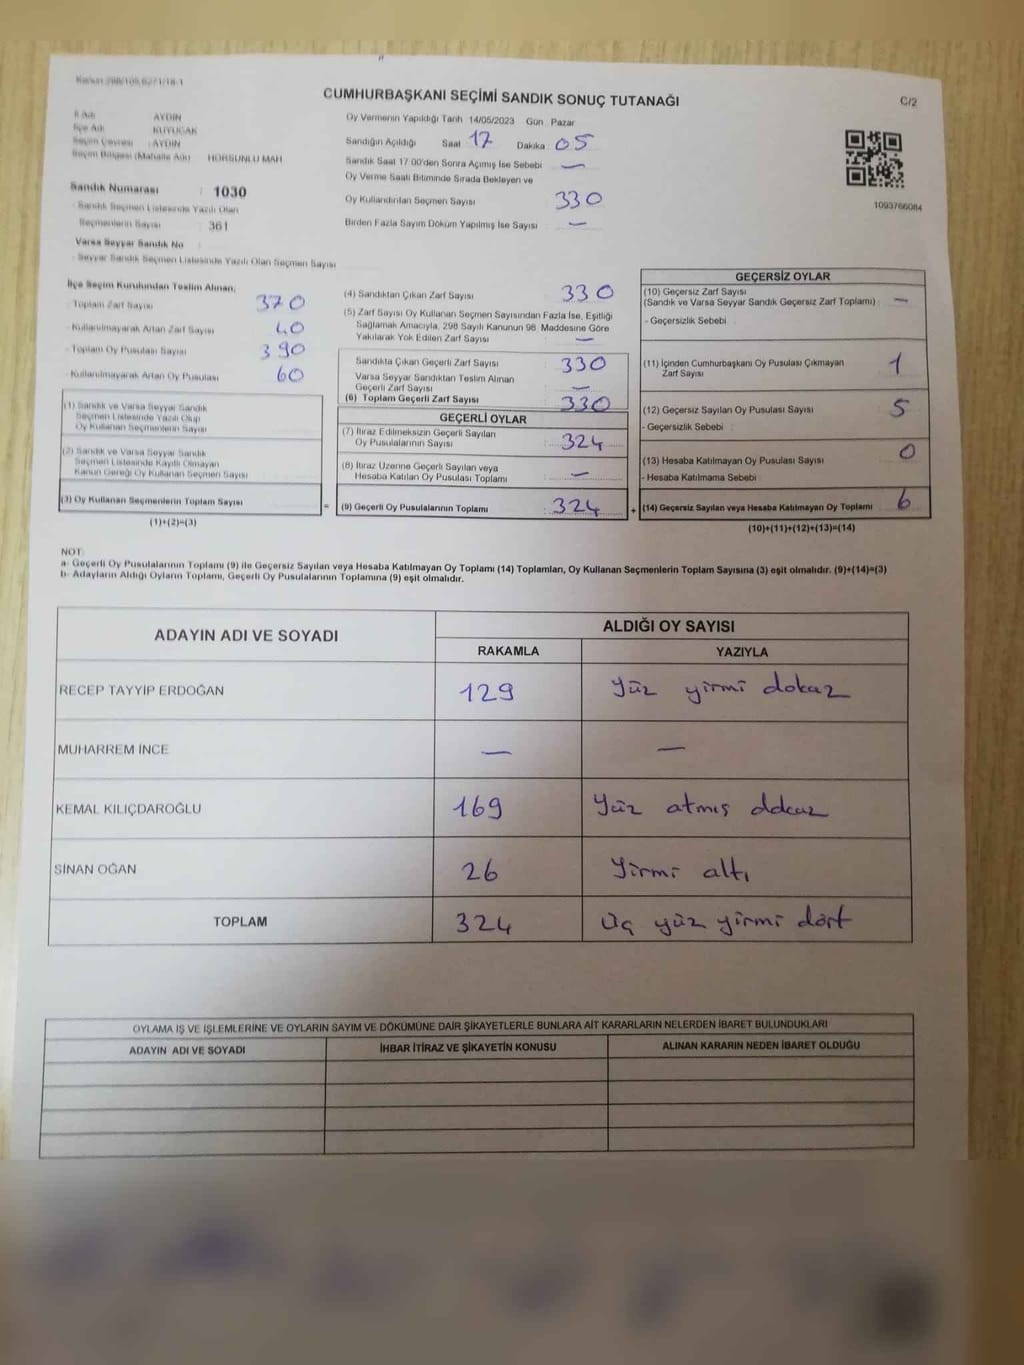 Kanun 298/105,6271/18-1
CUMHURBAŞKANI SEÇİMİ SANDIK SONUÇ TUTANAĞI
C/2
İl Adı AYDIN
İlçe Adı KUYUCAK
Seçim Çevresi : AYDIN
Seçim Bölgesi (Mahalle Adı) : HORSUNLU MAH
Sandık Numarası : 1030
- Sandık Seçmen Listesinde Yazılı Olan
Seçmenlerin Sayısı : 361
Varsa Seyyar Sandık No :
- Seyyar Sandık Seçmen Listesinde Yazılı Olan Seçmen Sayısı
Oy Vermenin Yapıldığı Tarih 14/05/2023 Gün Pazar
Sandığın Açıldığı Saat 17 Dakika 05
Sandık Saat 17:00'den Sonra Açımış İse Sebebi —
Oy Verme Saati Bitiminde Sırada Bekleyen ve
Oy Kullandırılan Seçmen Sayısı : 330
Birden Fazla Sayım Döküm Yapılmış İse Sayısı : —
1093766084
İlçe Seçim Kurulundan Teslim Alınan;
- Toplam Zarf Sayısı : 370
- Kullanılmayarak Artan Zarf Sayısı : 40
- Toplam Oy Pusulası Sayısı : 390
- Kullanılmayarak Artan Oy Pusulası : 60
(1) Sandık ve Varsa Seyyar Sandık
Seçmen Listesinde Yazılı Olup
Oy Kullanan Seçmenlerin Sayısı
(2) Sandık ve Varsa Seyyar Sandık
Seçmen Listesinde Kayıtlı Olmayan
Kanun Gereği Oy Kullanan Seçmen Sayısı
(3) Oy Kullanan Seçmenlerin Toplam Sayısı
(1)+(2)=(3)
=
(4) Sandıktan Çıkan Zarf Sayısı : 330
(5) Zarf Sayısı Oy Kullanan Seçmen Sayısından Fazla İse, Eşitliği
Sağlamak Amacıyla, 298 Sayılı Kanunun 98. Maddesine Göre
Yakılarak Yok Edilen Zarf Sayısı : —
Sandıkta Çıkan Geçerli Zarf Sayısı : 330
Varsa Seyyar Sandıktan Teslim Alınan
Geçerli Zarf Sayısı : —
(6) Toplam Geçerli Zarf Sayısı : 330
GEÇERLİ OYLAR
(7) İtiraz Edilmeksizin Geçerli Sayılan
Oy Pusulalarının Sayısı : 324
(8) İtiraz Üzerine Geçerli Sayılan veya
Hesaba Katılan Oy Pusulası Toplamı : —
(9) Geçerli Oy Pusulalarının Toplamı : 324
+
GEÇERSİZ OYLAR
(10) Geçersiz Zarf Sayısı
(Sandık ve Varsa Seyyar Sandık Geçersiz Zarf Toplamı) : —
- Geçersizlik Sebebi :
(11) İçinden Cumhurbaşkanı Oy Pusulası Çıkmayan
Zarf Sayısı 1
(12) Geçersiz Sayılan Oy Pusulası Sayısı : 5
- Geçersizlik Sebebi :
(13) Hesaba Katılmayan Oy Pusulası Sayısı : 0
- Hesaba Katılmama Sebebi :
(14) Geçersiz Sayılan veya Hesaba Katılmayan Oy Toplamı : 6
(10)+(11)+(12)+(13)=(14)
NOT:
a- Geçerli Oy Pusulalarının Toplamı (9) ile Geçersiz Sayılan veya Hesaba Katılmayan Oy Toplamı (14) Toplamları, Oy Kullanan Seçmenlerin Toplam Sayısına (3) eşit olmalıdır. (9)+(14)=(3)
b- Adayların Aldığı Oyların Toplamı, Geçerli Oy Pusulalarının Toplamına (9) eşit olmalıdır.
ADAYIN ADI VE SOYADI
ALDIĞI OY SAYISI
RAKAMLA YAZIYLA
RECEP TAYYİP ERDOĞAN 129 yüz yirmi dokuz
MUHARREM İNCE — —
KEMAL KILIÇDAROĞLU 169 Yüz atmış dokuz
SİNAN OĞAN 26 Yirmi altı
TOPLAM 324 Üç yüz yirmi dört
OYLAMA İŞ VE İŞLEMLERİNE VE OYLARIN SAYIM VE DÖKÜMÜNE DAİR ŞİKAYETLERLE BUNLARA AİT KARARLARIN NELERDEN İBARET BULUNDUKLARI
ADAYIN ADI VE SOYADI İHBAR İTİRAZ VE ŞİKAYETİN KONUSU ALINAN KARARIN NEDEN İBARET OLDUĞU